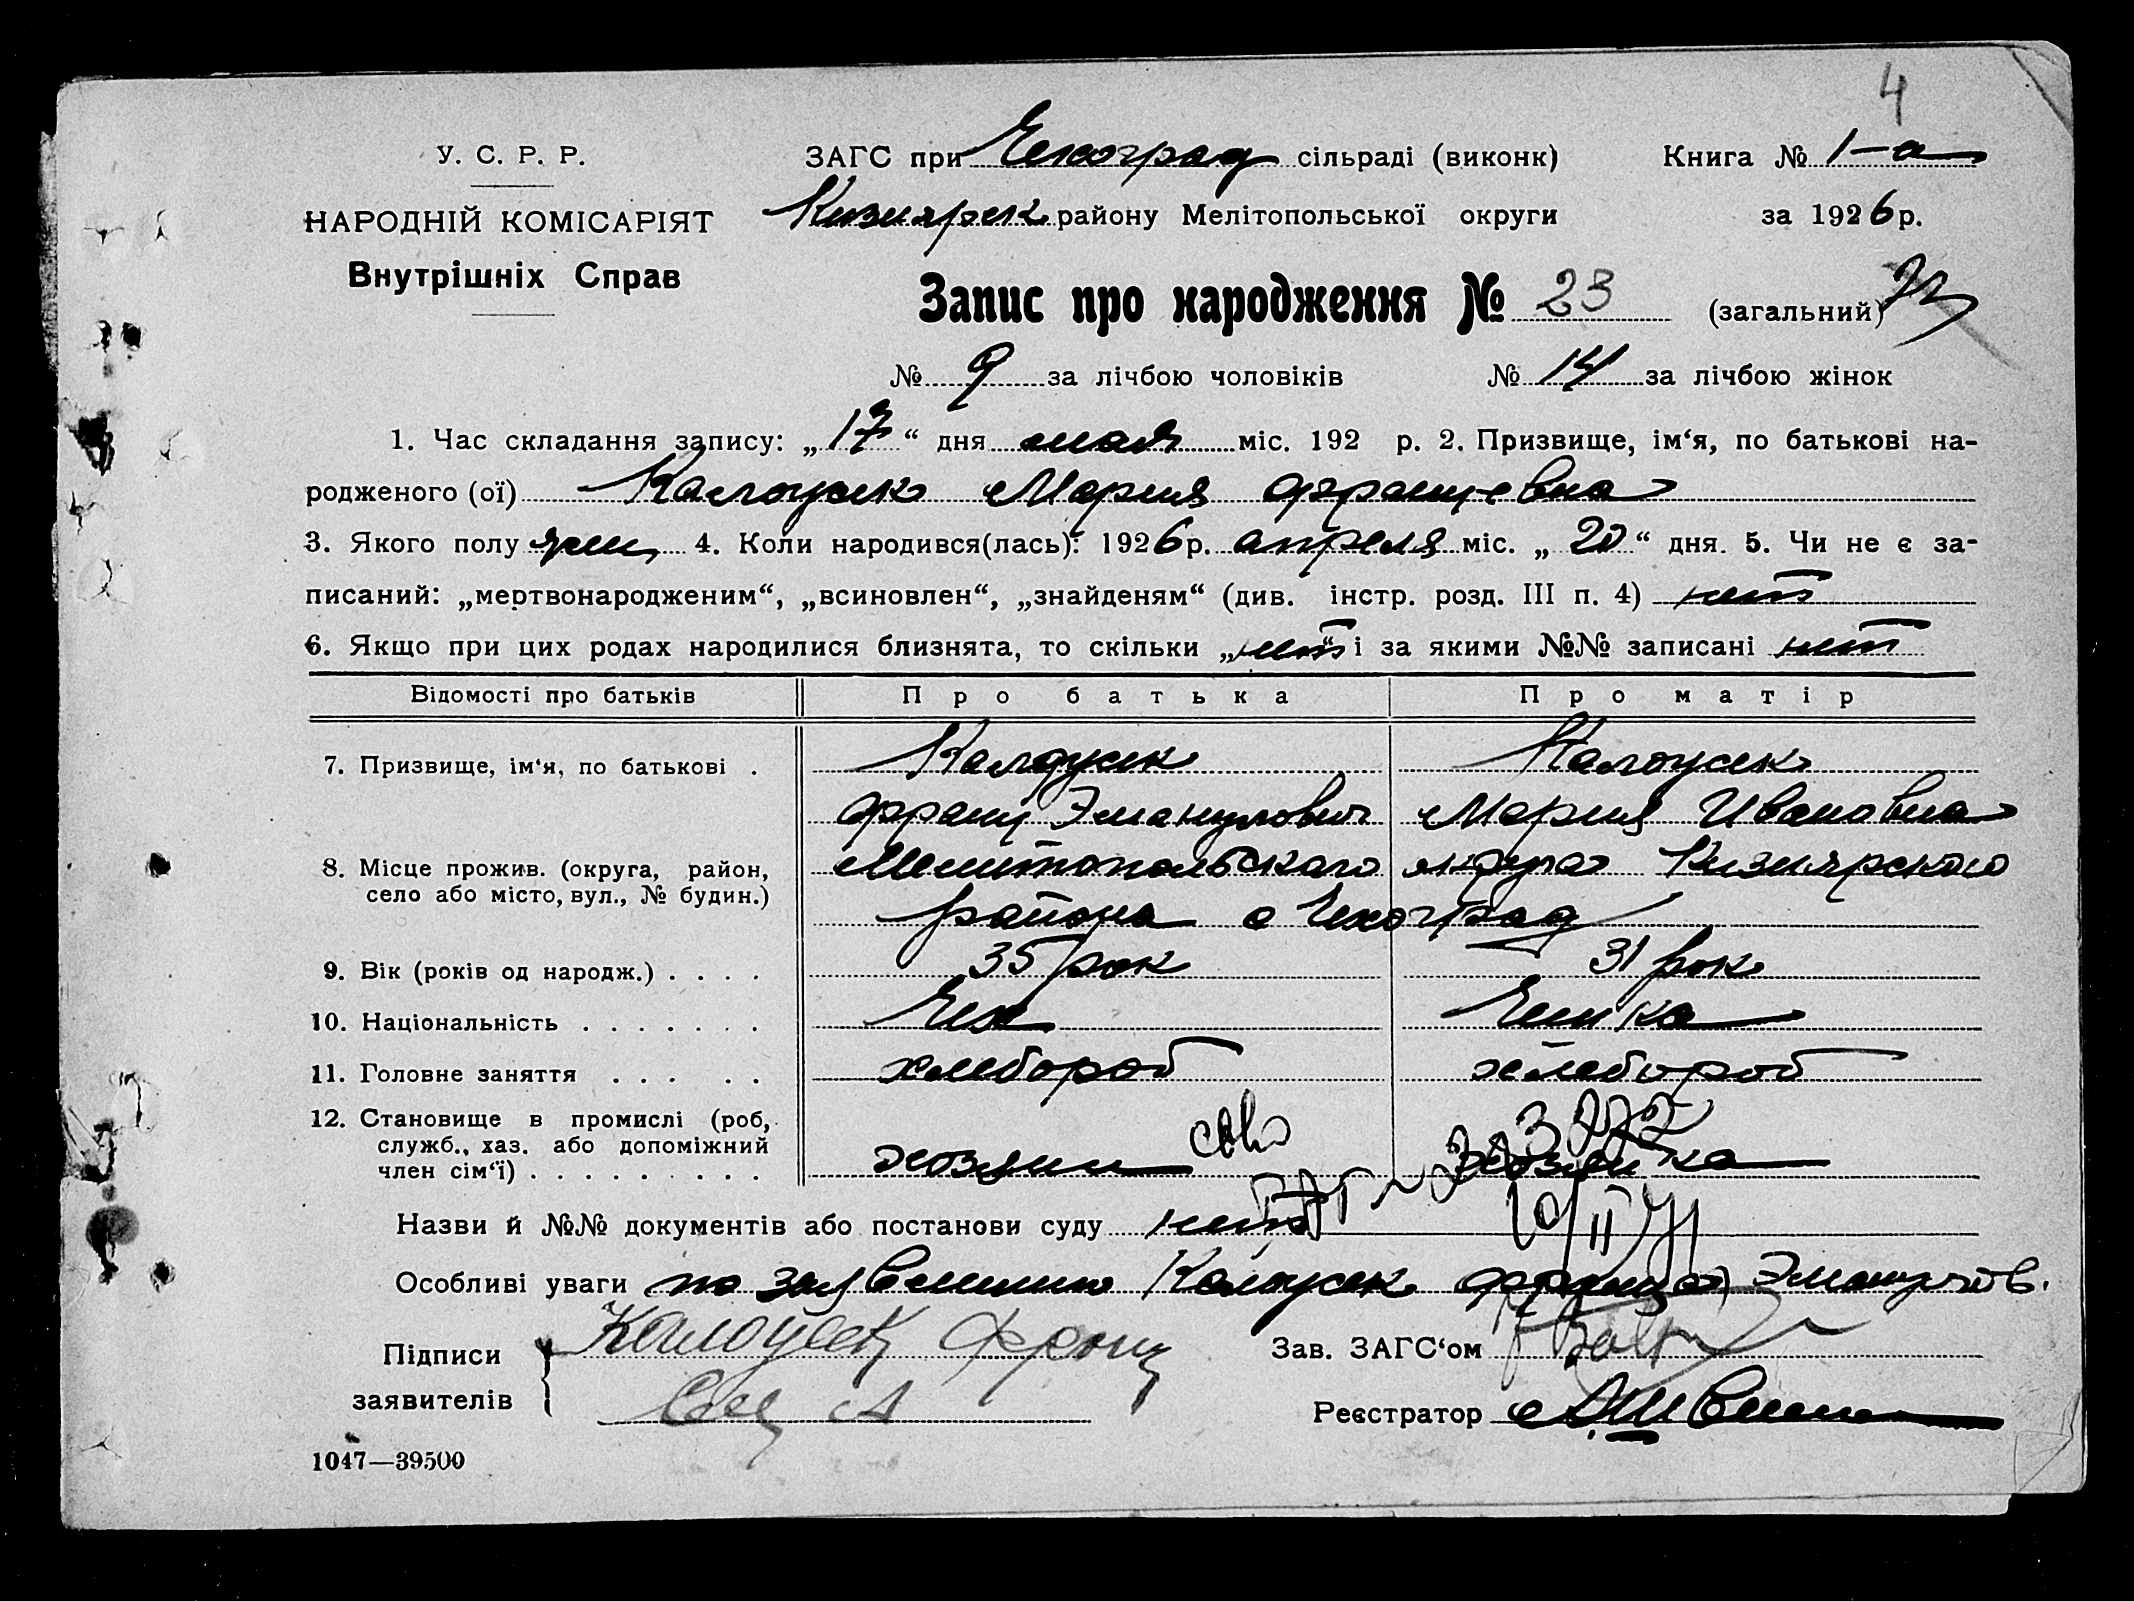 4
У. С. Р. Р.
НАРОДНІЙ КОМІСАРІЯТ
Внутрішніх Справ
ЗАГС при Чехоград сільраді (виконк)
Книга № 1-а
Кизиярск району Мелітопольської округи
за 1926 р.
Запис про народження № 23 (загальний)
№ 9 за лічбою чоловіків № 14 за лічбою жінок
1. Час складання запису: „17“ дня мая міс. 192 р. 2. Призвище, ім‘я, по батькові на-
родженого (ої) Калоусек Мария Францевна
3. Якого полу жен. 4. Коли народився(лась): 1926 р. апреля міс. „20“ дня. 5. Чи не є за-
писаний: „мертвонародженим“, „всиновлен“, „знайденям“ (див. інстр. розд. III п. 4) нет
6. Якщо при цих родах народилися близнята, то скільки „нет“ і за якими №№ записані нет
Відомості про батьків Про батька Про матір
7. Призвище, ім‘я, по батькові . Калоусек Калоусек
Франц Эманулович Мария Ивановна
8. Місце прожив. (округа, район, село або місто, вул., № будин.) Мелитопольского округа Кизиярского
района с Чехоград
9. Вік (років од народж.) . . . . 35 рок 31 рок
10. Національність . . . . . . . Чех Чешка
11. Головне заняття . . . . . хлебороб хлебороб
12. Становище в промислі (роб,
служб., хаз. або допоміжний
член сім‘ї) . . . . . . . . . хозяин хозяйка
Назви й №№ документів або постанови суду нет
10/II 71
Особливі уваги по заявлению Калоусек Франца Эманулов.
Підписи
заявителів
Калоусек Франц
Зав. ЗАГС‘ом
Реєстратор
1047—39500